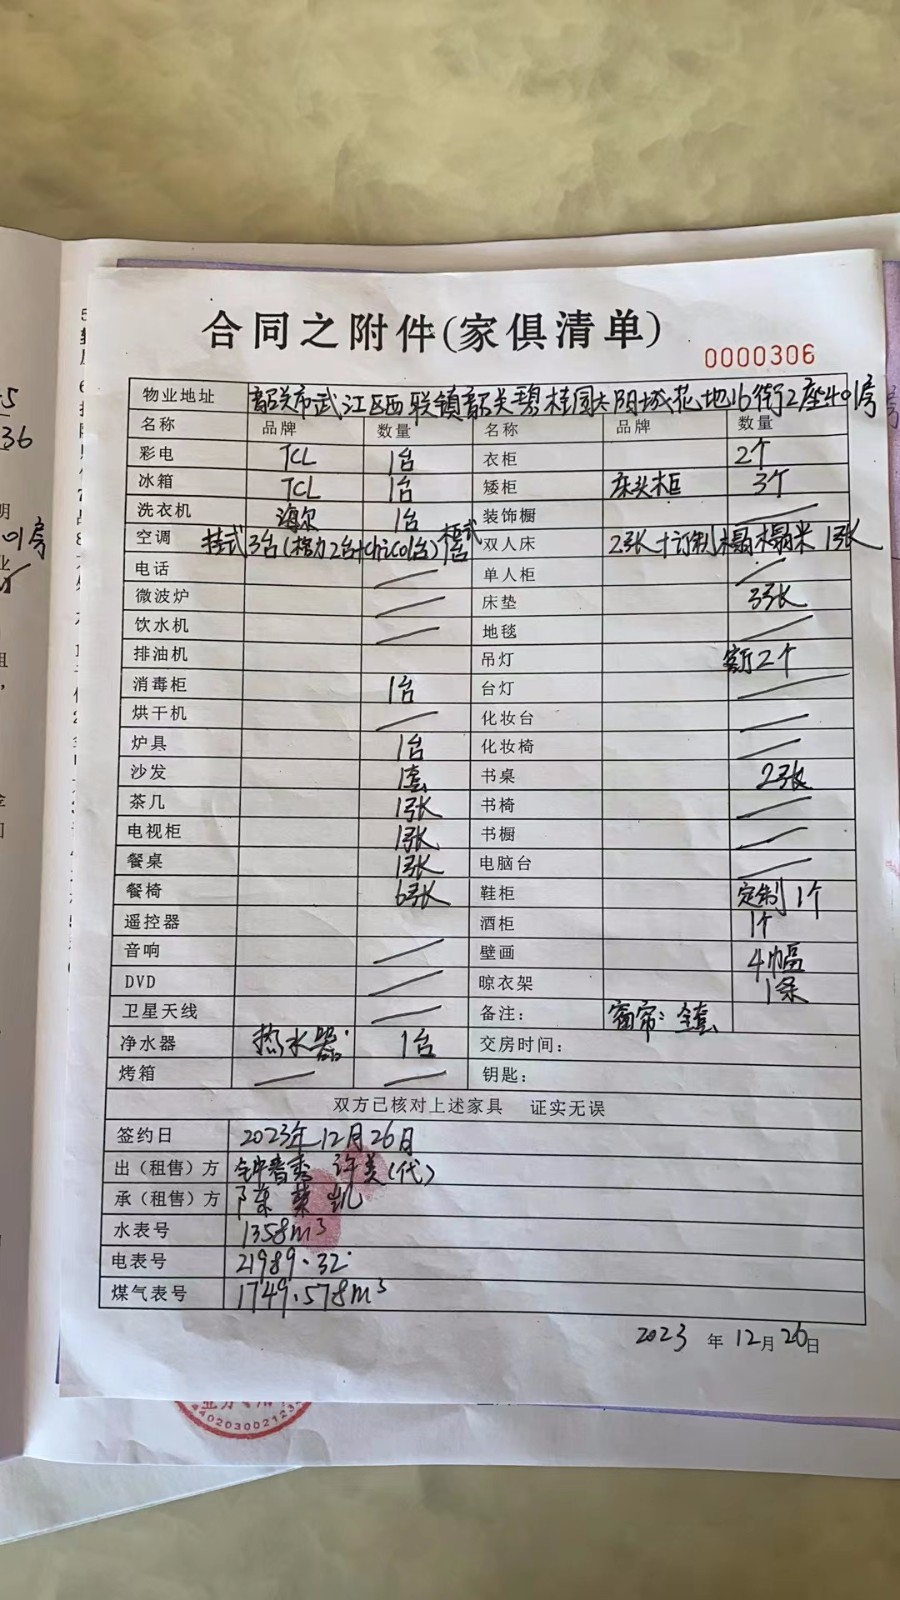 合同之附件(家俱清单)
0000306
物业地址 韶关市武江区西联镇韶关碧桂园太阳城花地16街2座401房
名称 品牌 数量 名称 品牌 数量
彩电 TCL 1台 衣柜 2个
冰箱 TCL 1台 矮柜 床头柜 3个
洗衣机 海尔 1台 装饰橱
空调 挂式3台(格力2台+Chico1台) 柜式 双人床 2张+订制榻榻米1张
电话 单人柜
微波炉 床垫 3张
饮水机 地毯
排油机 吊灯 客厅2个
消毒柜 1台 台灯
烘干机 化妆台
炉具 1台 化妆椅
沙发 1套 书桌 2张
茶几 1张 书椅
电视柜 1张 书橱
餐桌 1张 电脑台
餐椅 6张 鞋柜 定制1个
遥控器 酒柜 1个
音响 壁画 4幅
DVD 晾衣架 1条
卫星天线 备注: 窗帘:全套
净水器 热水器 1台 交房时间:
烤箱 钥匙:
双方已核对上述家具 证实无误
签约日 2023年12月26日
出（租售）方 钟春秀 许美(代)
承（租售）方 陈 凯
水表号 1358m³
电表号 21989.32
煤气表号 1749.578m³
2023年12月26日
36
业务专用